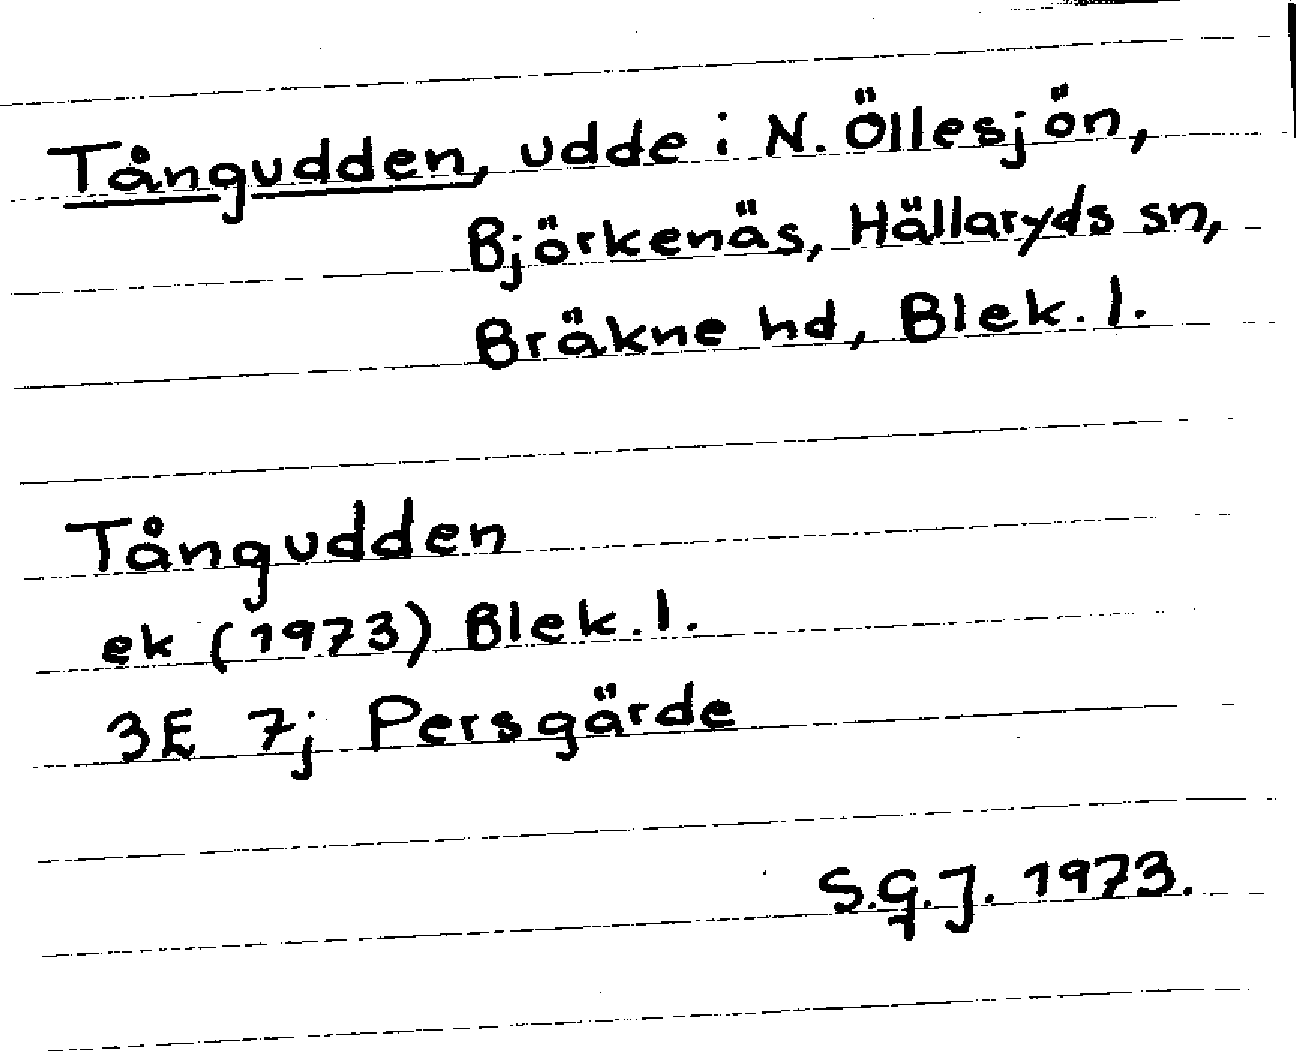 Tångudden, udde i N. Öllesjön,
Björkenäs, Hällaryds sn,
Bräkne hd, Blek. l.
Tångudden
ek (1973) Blek. l.
3E 7j Persgärde
S.G.J. 1973.